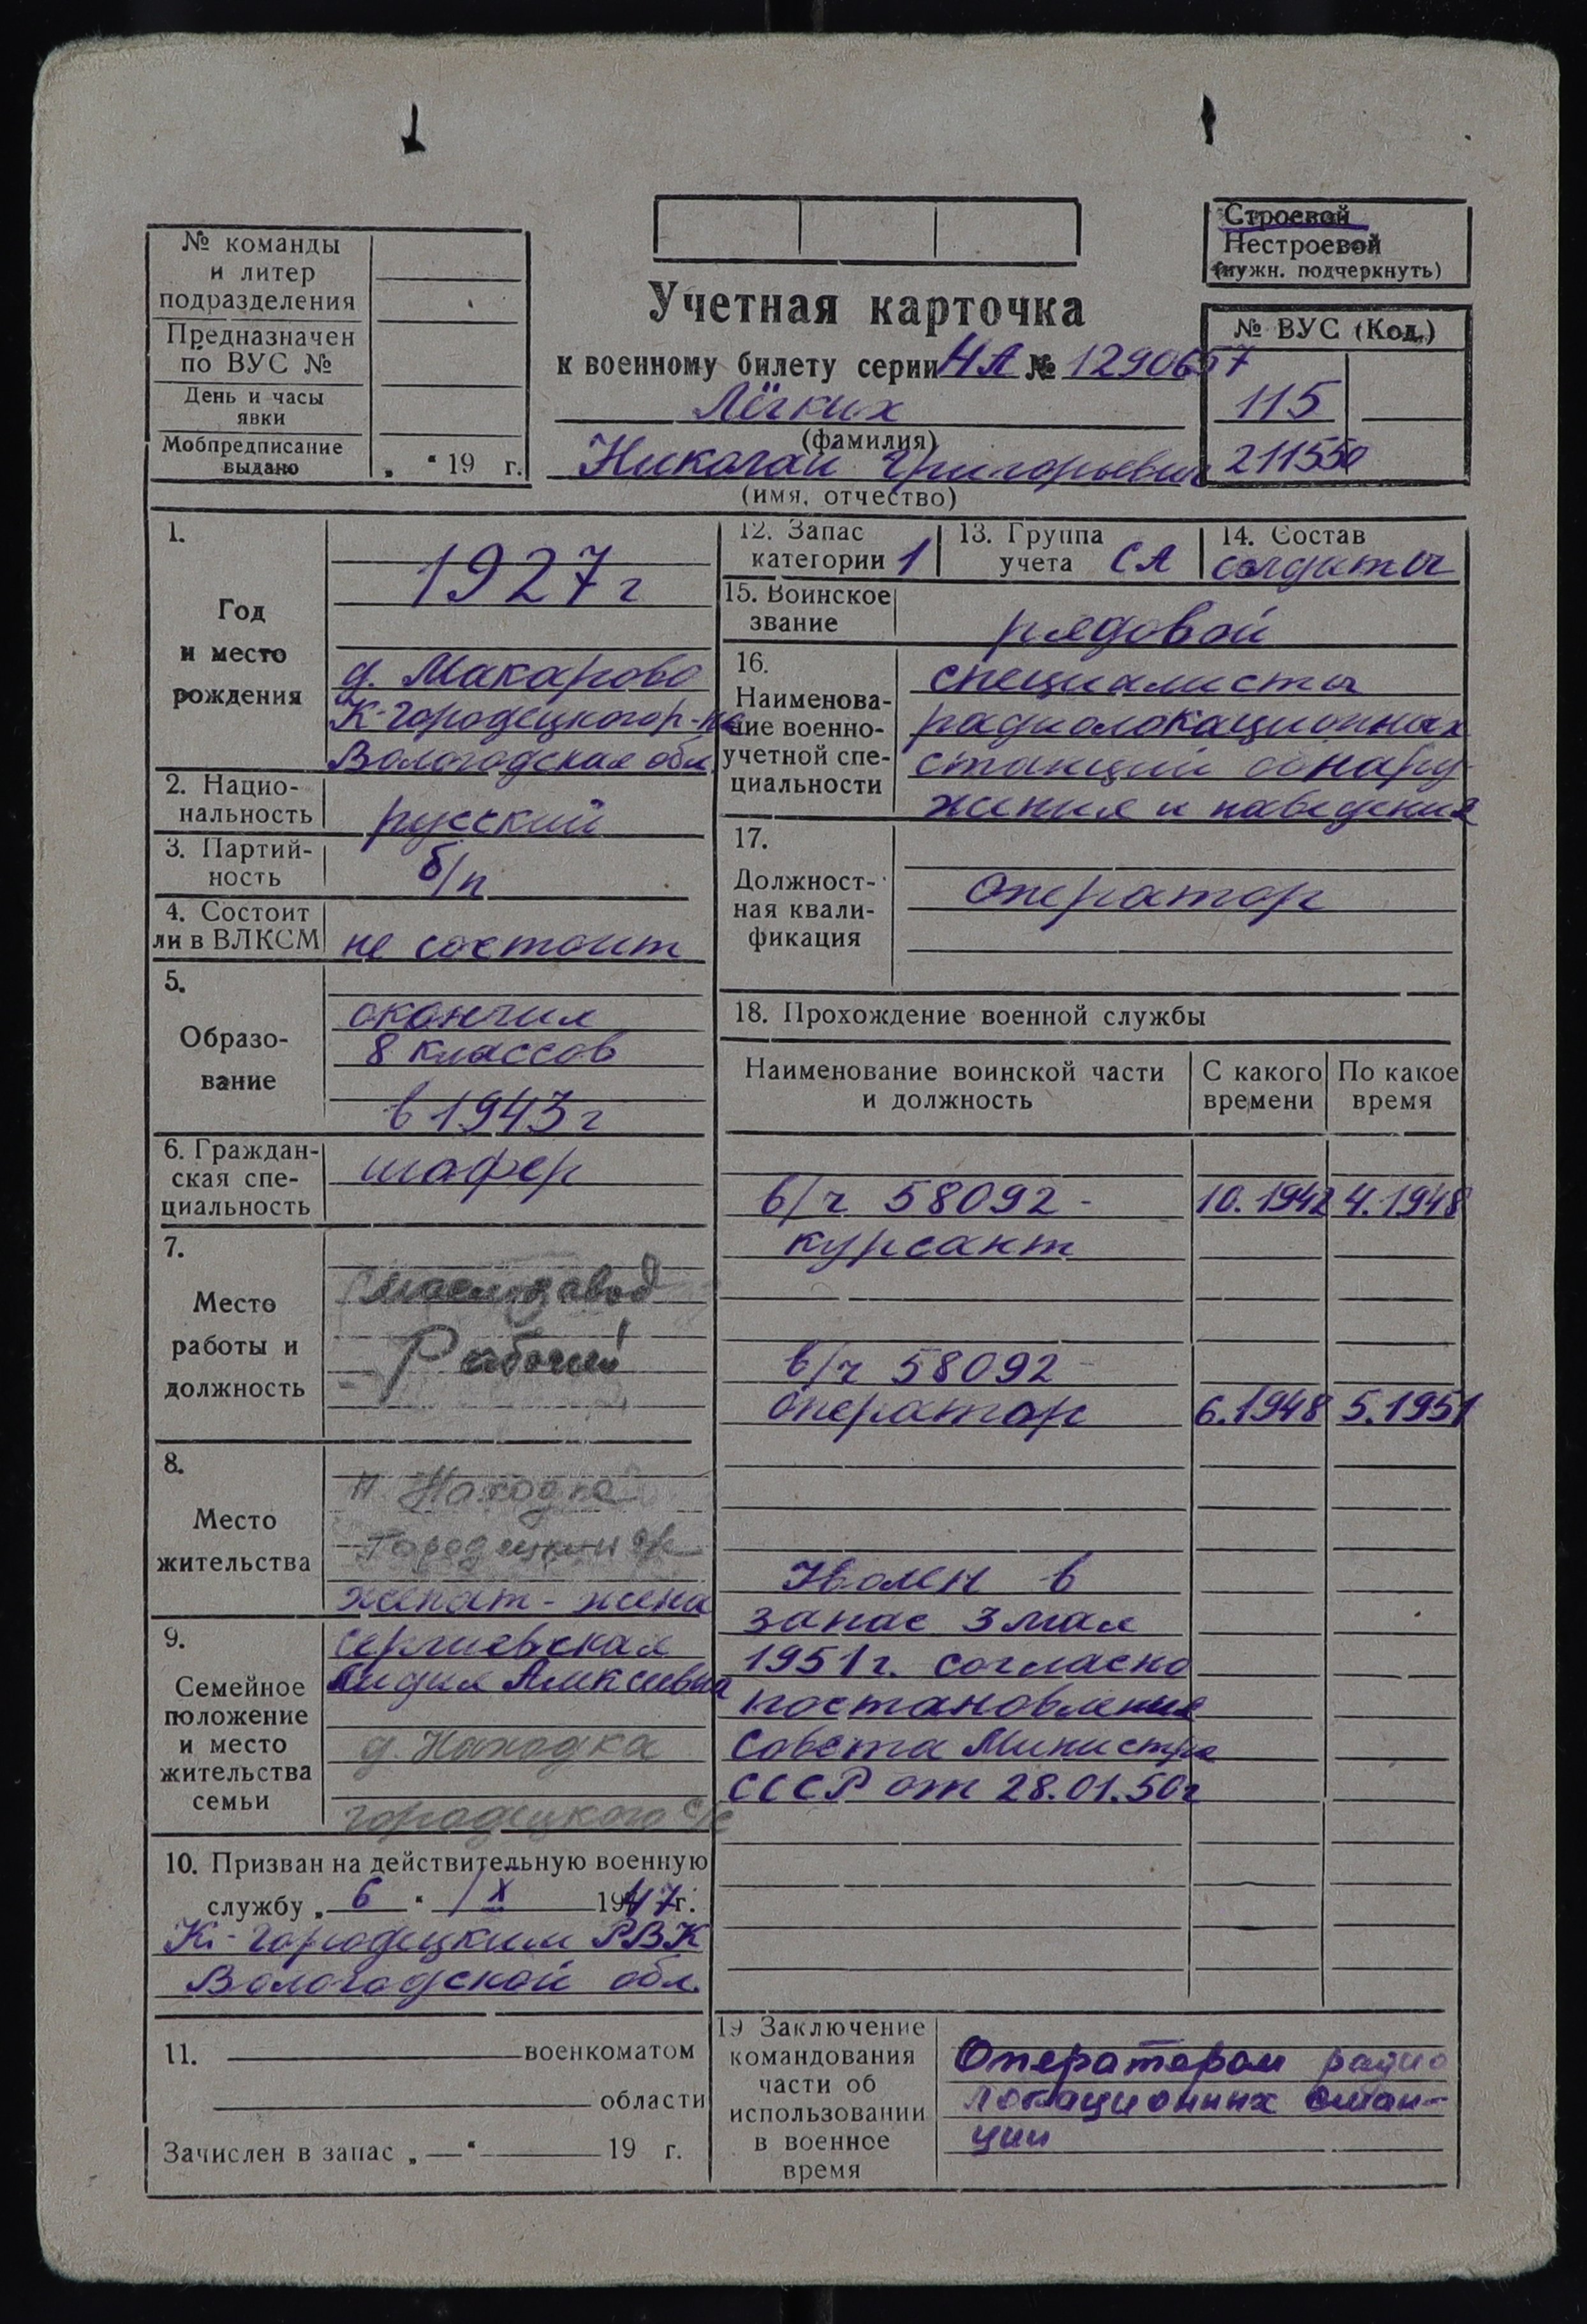 № команды
и литер
подразделения
Предназначен
по ВУС №
День и часы
явки
Мобпредписание
выдано
„ “ 19 г.
Строевой
Нестроевой
(нужн. подчеркнуть)
Учетная карточка
к военному билету серии НА № 1290657
Лёгких
(фамилия)
Николай Григорьевич
(имя, отчество)
№ ВУС (Код)
115
211550
1.
Год
и место
рождения
1927 г
д. Макарово
К-Городецкого р-на
Вологодская обл.
2. Нацио-
нальность
русский
3. Партий-
ность
б/п
4. Состоит
ли в ВЛКСМ
не состоит
5.
Образо-
вание
окончил
8 классов
в 1943 г
6. Граждан-
ская спе-
циальность
шофер
7.
Место
работы и
должность
Маслозавод
Рабочий
8.
Место
жительства
Находка
Городецкий с/с
женат - жена
9.
Семейное
положение
и место
жительства
семьи
Сергиевская
Лидия Алексеевна
д. Находка
городецкого с/с
10. Призван на действительную военную
службу „ 6 “ IX 1947 г.
К-Городецким РВК
Вологодской обл.
11. военкоматом
области
Зачислен в запас „ — “ 19 г.
12. Запас
категории 1
13. Группа
учета СА
14. Состав
солдаты
15. Воинское
звание
рядовой
16.
Наименова-
ние военно-
учетной спе-
циальности
специалисты
радиолокационных
станций обнару-
жения и наведения
17.
Должност-
ная квали-
фикация
Оператор
18. Прохождение военной службы
Наименование воинской части
и должность
С какого
времени
По какое
время
в/ч 58092 - 10.1942 4.1948
курсант
в/ч 58092
Оператор 6.1948 5.1951
Уволен в
запас 3 мая
1951 г. согласно
постановления
Совета Министра
СССР от 28.01.50 г
19 Заключение
командования
части об
использовании
в военное
время
Оператором радио
локационных стан-
ции